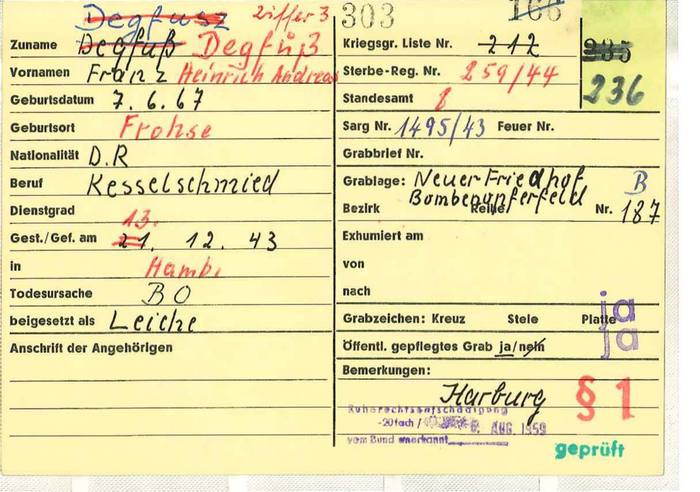 Degfusz Ziffer 3
Zuname Degfuß Degfüß
Vornamen Franz Heinrich Andreas
Geburtsdatum 7. 6. 67
Geburtsort Frohse
Nationalität D.R
Beruf Kesselschmied
Dienstgrad
13.
Gest./Gef. am 21. 12. 43
in Hamb.
Todesursache BO
beigesetzt als Leiche
Anschrift der Angehörigen
303 166
Kriegsgr. Liste Nr. 212
235
Sterbe-Reg. Nr. 259/44
236
Standesamt 1
Sarg Nr. 1495/43 Feuer Nr.
Grabbrief Nr.
Grablage: Neuer Friedhof B
Bombenopferfeld
Bezirk Reihe Nr. 187
Exhumiert am
von
nach
ja
Grabzeichen: Kreuz Stele Platte
ja
Öffentl. gepflegtes Grab ja/nein
Bemerkungen:
Harburg § 1
Ruherechtsentschädigung
-20fach / 6. AUG. 1959
vom Bund anerkannt
geprüft